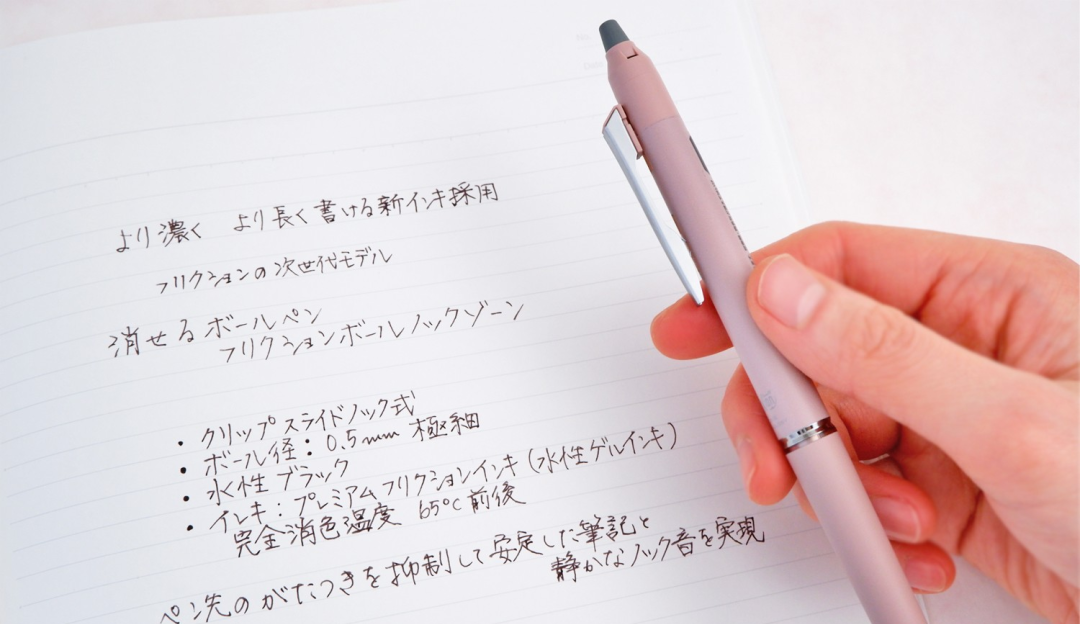 より濃く より長く書ける新インキ採用
フリクションの次世代モデル
消せるボールペン
フリクションボールノックゾーン
・クリップスライドノック式
・ボール径:0.5mm 極細
・水性ブラック
・インキ:プレミアムフリクションインキ(水性ゲルインキ)
完全消色温度 65℃前後
ペン先のがたつきを抑制して安定した筆記と
静かなノック音を実現